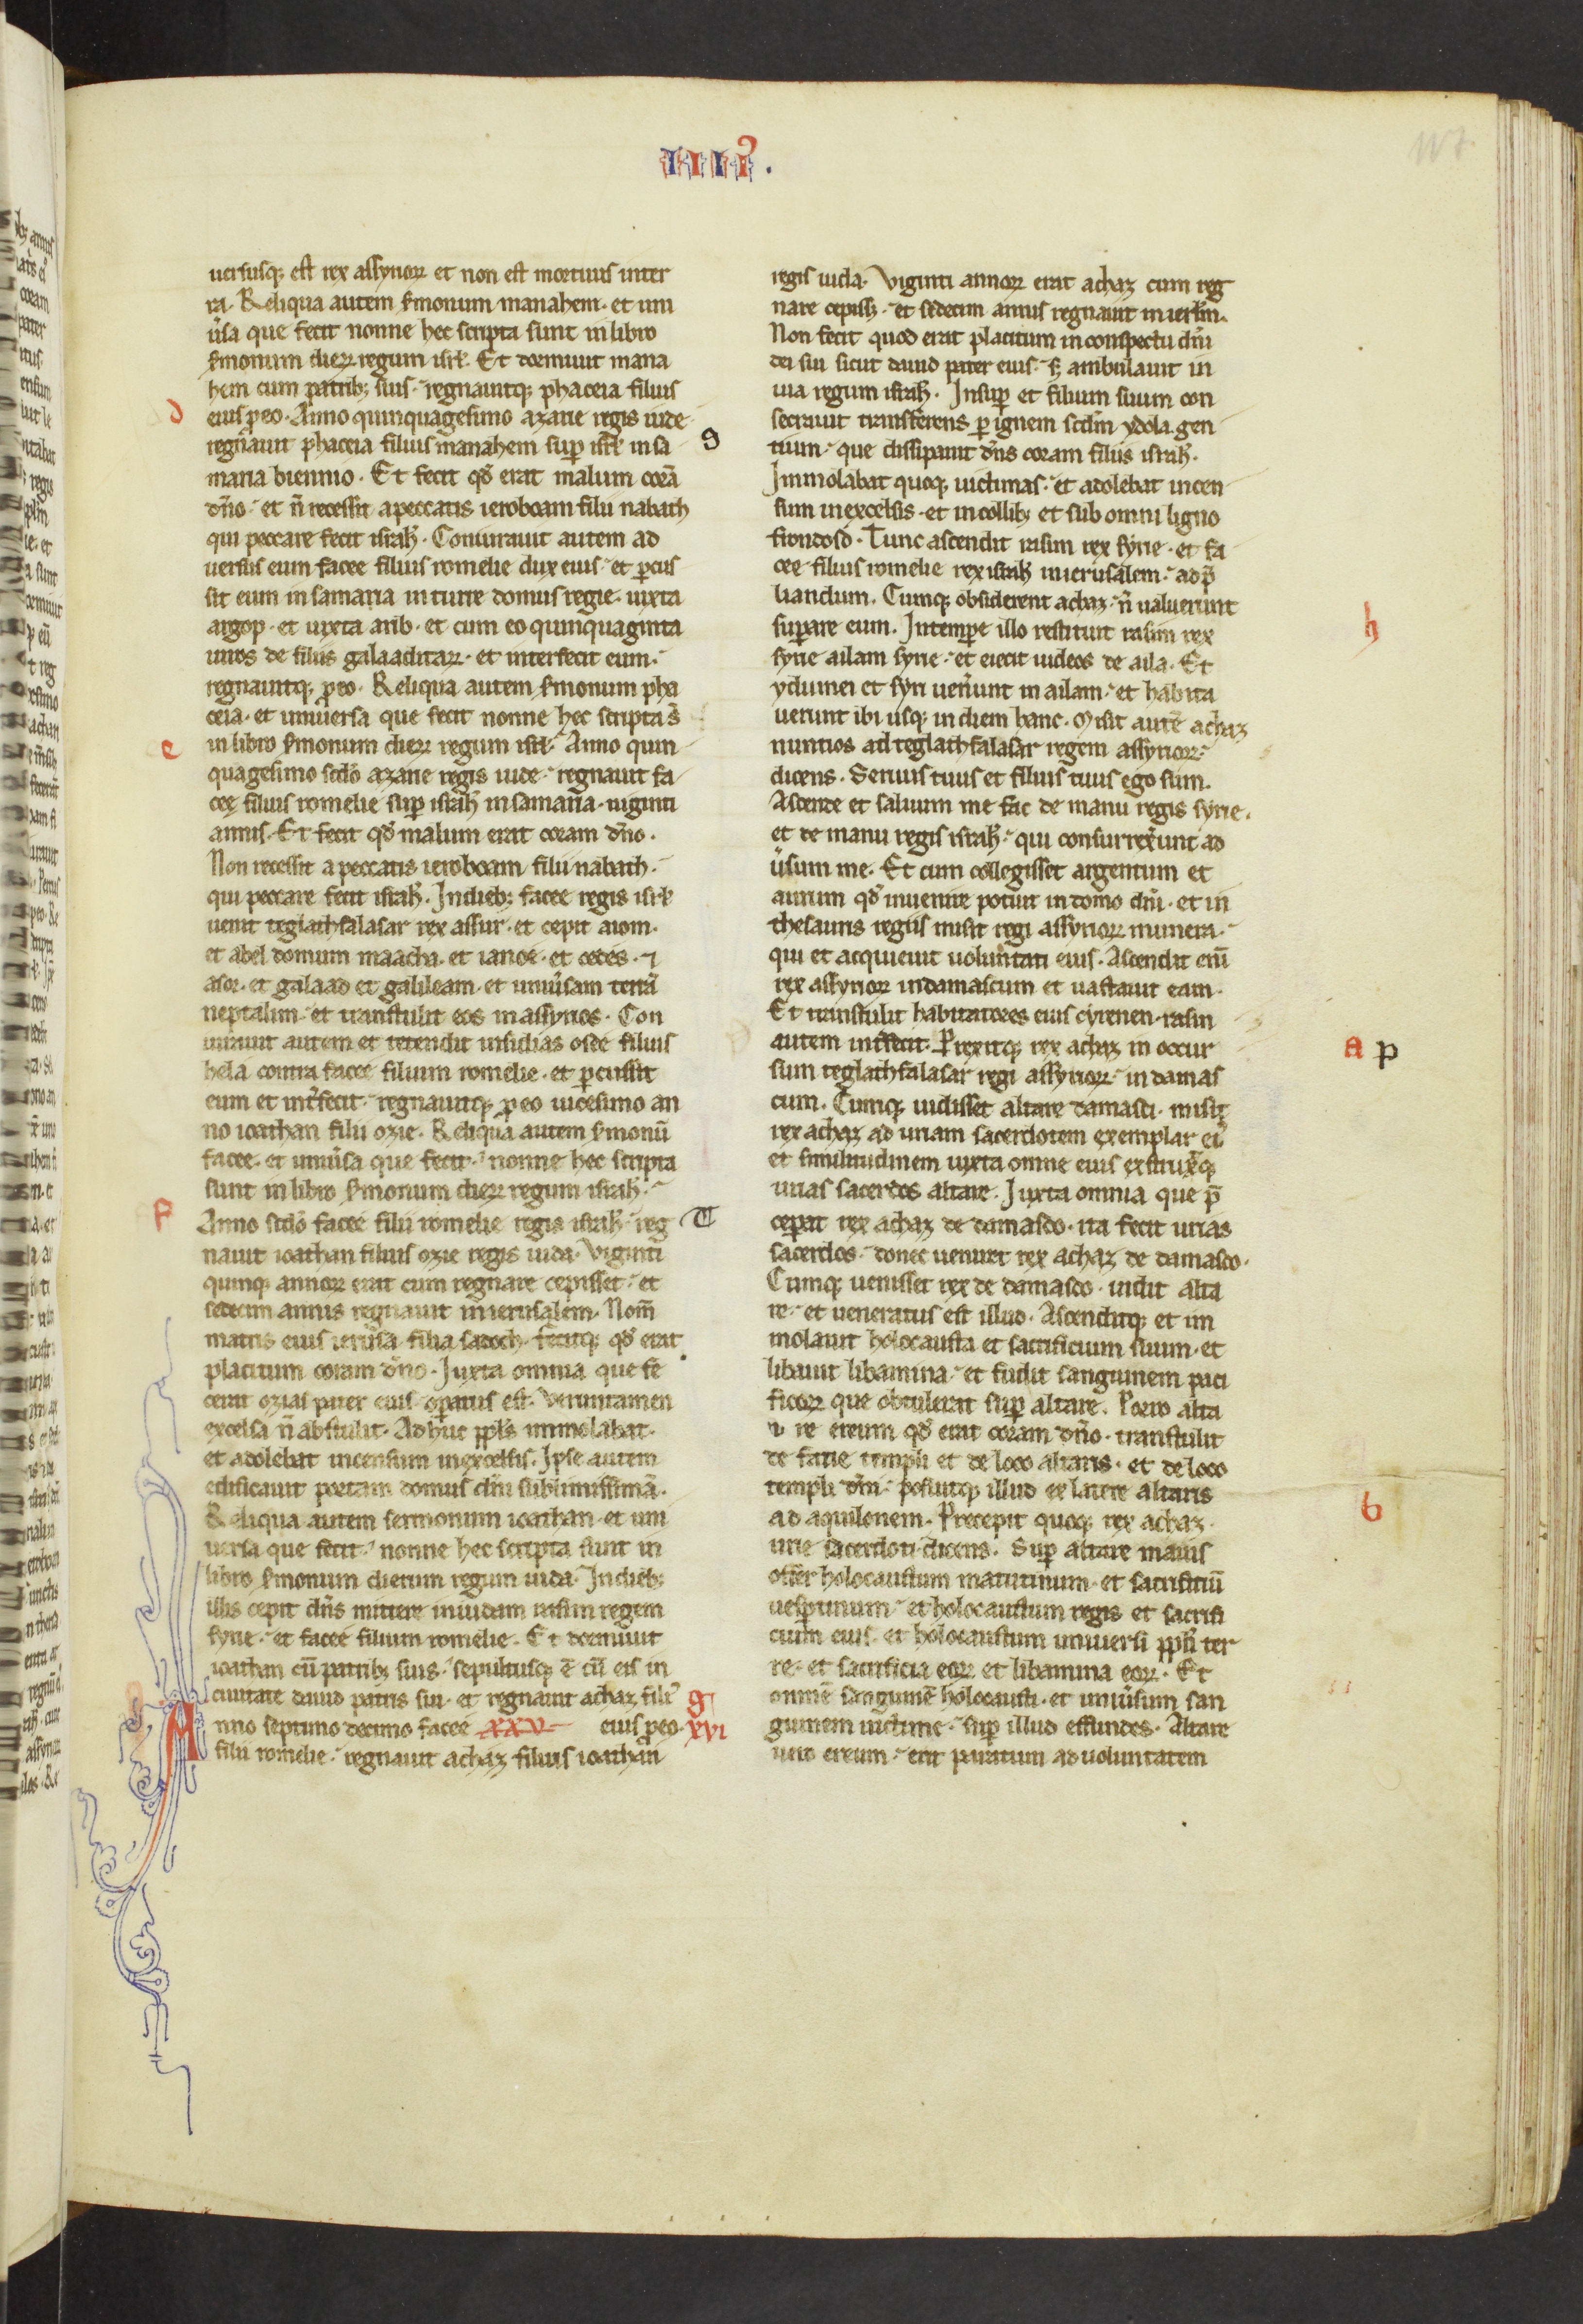 IIII⁹.
uersusq; est rex assyrioꝝ et non est mortuus in ter
ra. Reliqua autem s̃monum manahem. et uni
ũsa que fecit nonne hec scripta sunt in libro
s̃monum dierꝝ regum isrł. Et dormiuit mana
hem cum patrib; suis. regnauitq; phaceia filius
d eius p eo. Anno quinquagesimo azarie regis iude
regnauit phaceia filius manahem sup isrł in sa
maria biennio. Et fecit qd̃ erat malum corã
dño. et ñ recessit a peccatis ieroboam filii nabath
qui peccare fecit israhł. Coniurauit autem ad
uersus eum facee filius romelie dux eius. et pcus
sit eum in samaria in turre domus regie. iuxta
argop. et iuxta arib. et cum eo quinquaginta
uiros de filiis galaaditarꝝ. et interfecit eum.
regnauitq; p eo. Reliqua autem s̃monum pha
ceia. et uniuersa que fecit nonne hec scripta s̃
e in libro s̃monum dierꝝ regum isrł. Anno quin
quagesimo scd̃o azarie regis iude. regnauit fa
cee filius romelie sup israhł in samaria. uiginti
annis. Et fecit qd̃ malum erat coram dño.
Non recessit a peccatis ieroboam filii nabath.
qui peccare fecit israhł. In dieb; facee regis isrł
uenit teglathfalasar rex assur. et cepit aiom.
et abel domum maacha. et ianoe. et cedes. ⁊
asor. et galaad et galileam. et uniũsam terrã
neptalim. et transtulit eos in assyrios. Con
iurauit autem et tetendit insidias osee filius
hela contra facee filium romelie. et pcussit
eum et int̃fecit. regnauitq; p eo uicesimo an
no ioathan filii ozie. Reliqua autem s̃monũ
facee. et uniũsa que fecit. nonne hec scripta
sunt in libro s̃monum dierꝝ regum israhł.
f Anno scd̃o facee filii romelie regis israhł reg
nauit ioathan filius ozie regis iuda. Viginti
quinq; annorꝝ erat cum regnare cepisset. et
sedecim annis regnauit in ierusalem. Nom̃
matris eius ierusa filia sadoch. fecitq; qd̃ erat
placitum coram dño. Iuxta omnia que fe
cerat ozias pater eius opatus est. Veruntamen
excelsa ñ abstulit. Adhuc ppls immolabat.
et adolebat incensum in excelsis. Ipse autem
edificauit portam domus dñi sublimissimã.
Reliqua autem sermonum ioathan. et uni
uersa que fecit. nonne hec scripta sunt in
libro s̃monum dierum regum iuda. In dieb;
illis cepit dñs mittere in iudam rasim regem
syrie. et facee filium romelie. Et dormiuit
ioathan cũ patrib; suis. sepultusq; ẽ cũ eis in
ciuitate dauid patris sui. et regnauit achaz fili⁹
Anno septimo decimo facee xxv eius p eo. g xvi
filii romelie. regnauit achaz filius ioathan
regis iuda. Viginti annorꝝ erat achaz cum reg
nare cepiss;. et sedecim annis regnauit in ierłm.
Non fecit quod erat placitum in conspectu dñi
dei sui sicut dauid pater eius. s; ambulauit in
uia regum israhł. Insup et filium suum con
secrauit transferens p ignem scdm ydola gen
9 tium. que dissipauit dñs coram filiis israhł.
Immolabat quoq; uictimas. et adolebat incen
sum in excelsis. et in collib; et sub omni ligno
frondoso. Tunc ascendit rasim rex syrie. et fa
cee filius romelie rex israhł in ierusalem. ad p̃
liandum. Cumq; obsiderent achaz. ñ ualuerunt
h supare eum. In tempe illo restituit rasim rex
syrie ailam syrie. et eiecit iudeos de aila. Et
ydumei et syri ueñunt in ailam. et habita
uerunt ibi usq; in diem hanc. Misit autẽ achaz
nuntios ad teglathfalasar regem assyriorꝝ.
dicens. Seruus tuus et filius tuus ego sum.
Ascende et saluum me fac de manu regis syrie.
et de manu regis israhł. qui consurrex̃unt ad
ũsum me. Et cum collegisset argentum et
aurum qd̃ inuenire potuit in domo dñi. et in
thesauris regiis misit regi assyriorꝝ munera.
qui et acquieuit uolun̾tati eius. Ascendit eni᷈
rex assyriorꝝ in damascum et uastauit eam.
Et transtulit habitatores eius cyrenen. rasin
a p autem int̃fecit. Prexitq; rex achaz in occur
sum teglathfalasar regi assyriorꝝ. in damas
cum. Cumq; uidisset altare damasci. misit
rex achaz ad uriam sacerdotem exemplar ei⁹
et similitudinem iuxta omne eius exstrux̃q;
urias sacerdos altare. Iuxta omnia que p̃
T cepat rex achaz de damasco. ita fecit urias
sacerdos. donec ueniret rex achaz de damasco.
Cumq; uenisset rex de damasco. uidit alta
re. et ueneratus est illud. Ascenditq; et im
molauit holocausta et sacrificium suum. et
libauit libamina. et fudit sanguinem paci
ficorꝝ que obtulerat sup altare. Porro alta
re ereum qd̃ erat coram dño. transtulit
de facie templi et de loco altaris. et de loco
templi dñi. posuitq; illud ex latere altaris
b ad aquilonem. Precepit quoq; rex achaz.
urie sacerdoti dicens. Sup altare maius
offer holocaustum matutinum. et sacrifitiũ
uesptinum. et holocaustum regis et sacrifi
cium eius. et holocaustum uniuersi ppli ter
re. et sacrificia eorꝝ et libamina eorꝝ. Et
omnẽ sanguinẽ holocausti. et uniũsum san
guinem uictime. sup illud effundes. Altare
uero ereum. erit paratum ad uoluntatem